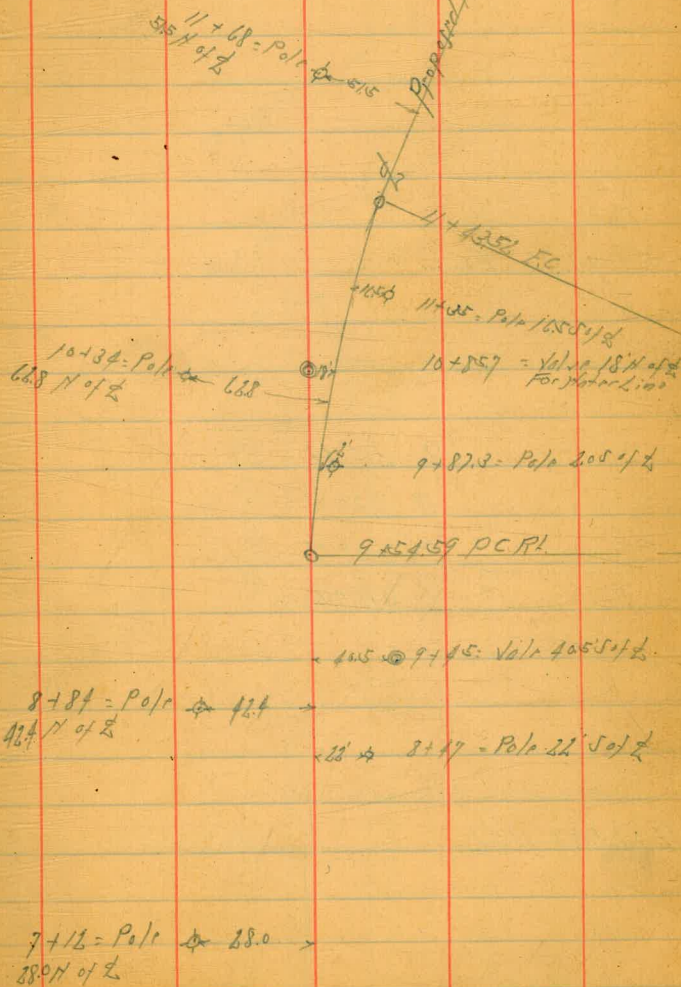 11 + 68 = Pole
51.5 N of ℄
51.5
Proposed
11 + 43.56 E.C.
16.5
11+35 = Pole 16.5 S of ℄
10+34 = Pole
66.8 N of ℄
66.8
18'
10+85.7 = Valve 18' N of ℄
For Water Line
2'
9+87.3 = Pole 2.0 S of ℄
9+54.59 P.C. Rt.
40.5
9+45 = Valve 40.5 S of ℄
8+84 = Pole
42.4 N of ℄
42.4
22'
8+47 = Pole 22' S of ℄
7+12 = Pole
28.0 N of ℄
28.0